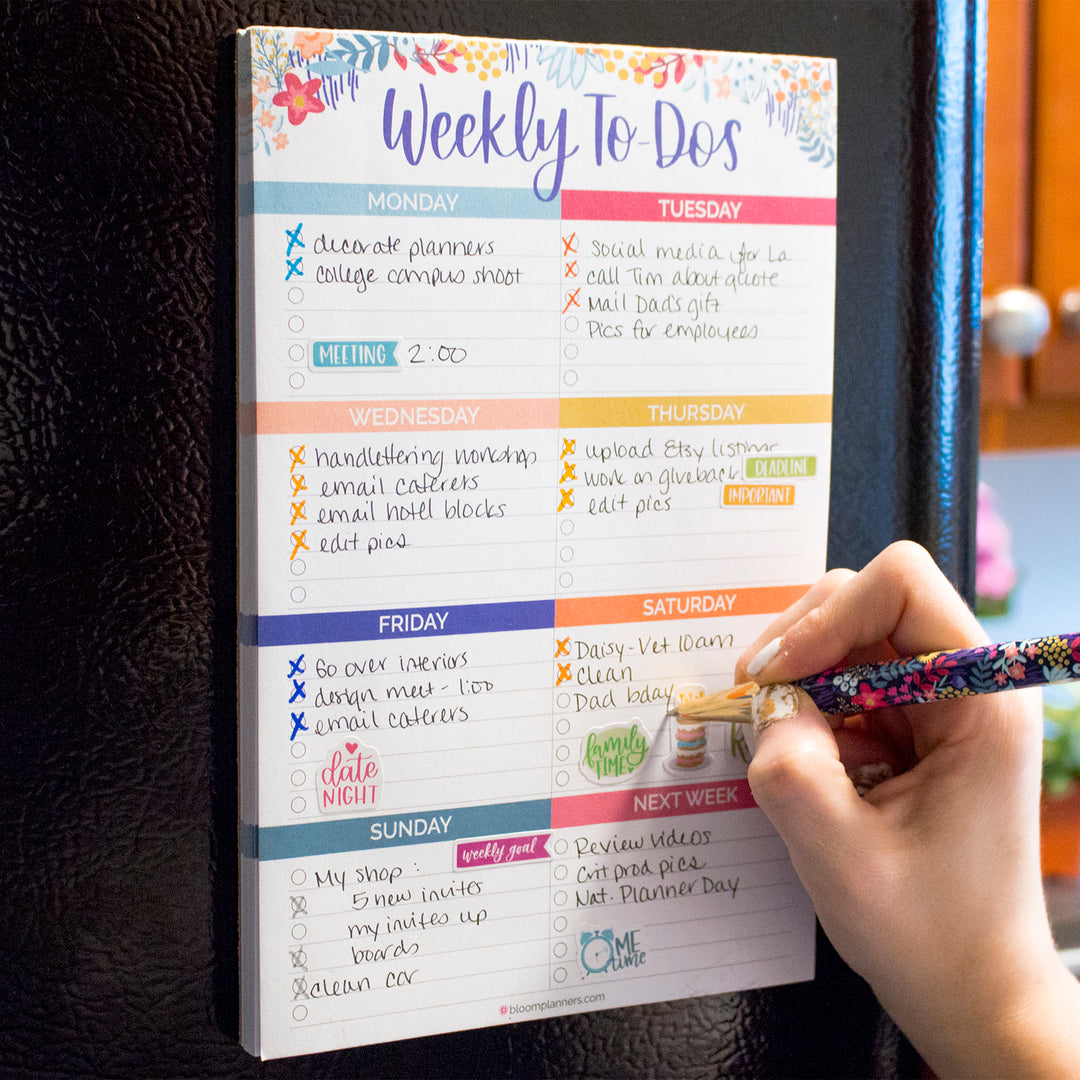 Weekly To-Dos
MONDAY
decorate planners
college campus shoot
MEETING 2:00
TUESDAY
Social media for La
call Tim about quote
Mail Dad's gift
Pics for employees
WEDNESDAY
handlettering workshop
email caterers
email hotel blocks
edit pics
THURSDAY
upload Etsy listings
work on giveback DEADLINE
edit pics IMPORTANT
FRIDAY
Go over interiors
design meet - 1:00
email caterers
date
NIGHT
SATURDAY
Daisy-Vet 10am
clean
Dad bday
family
TIME
SUNDAY
weekly goal
My shop:
5 new invites
my invites up
boards
clean car
NEXT WEEK
Review Videos
Crit prod pics
Nat. Planner Day
ME
time
bloomplanners.com